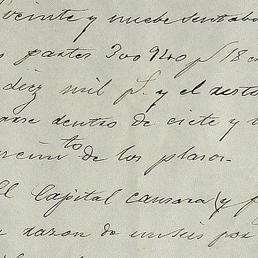 veinte y nueve centavos
partes 300 940 p/ 18 c
diez mil p. y el resto
dentro de siete y
to de los plazos.
El Capital causara (y p
a razon de un seis por